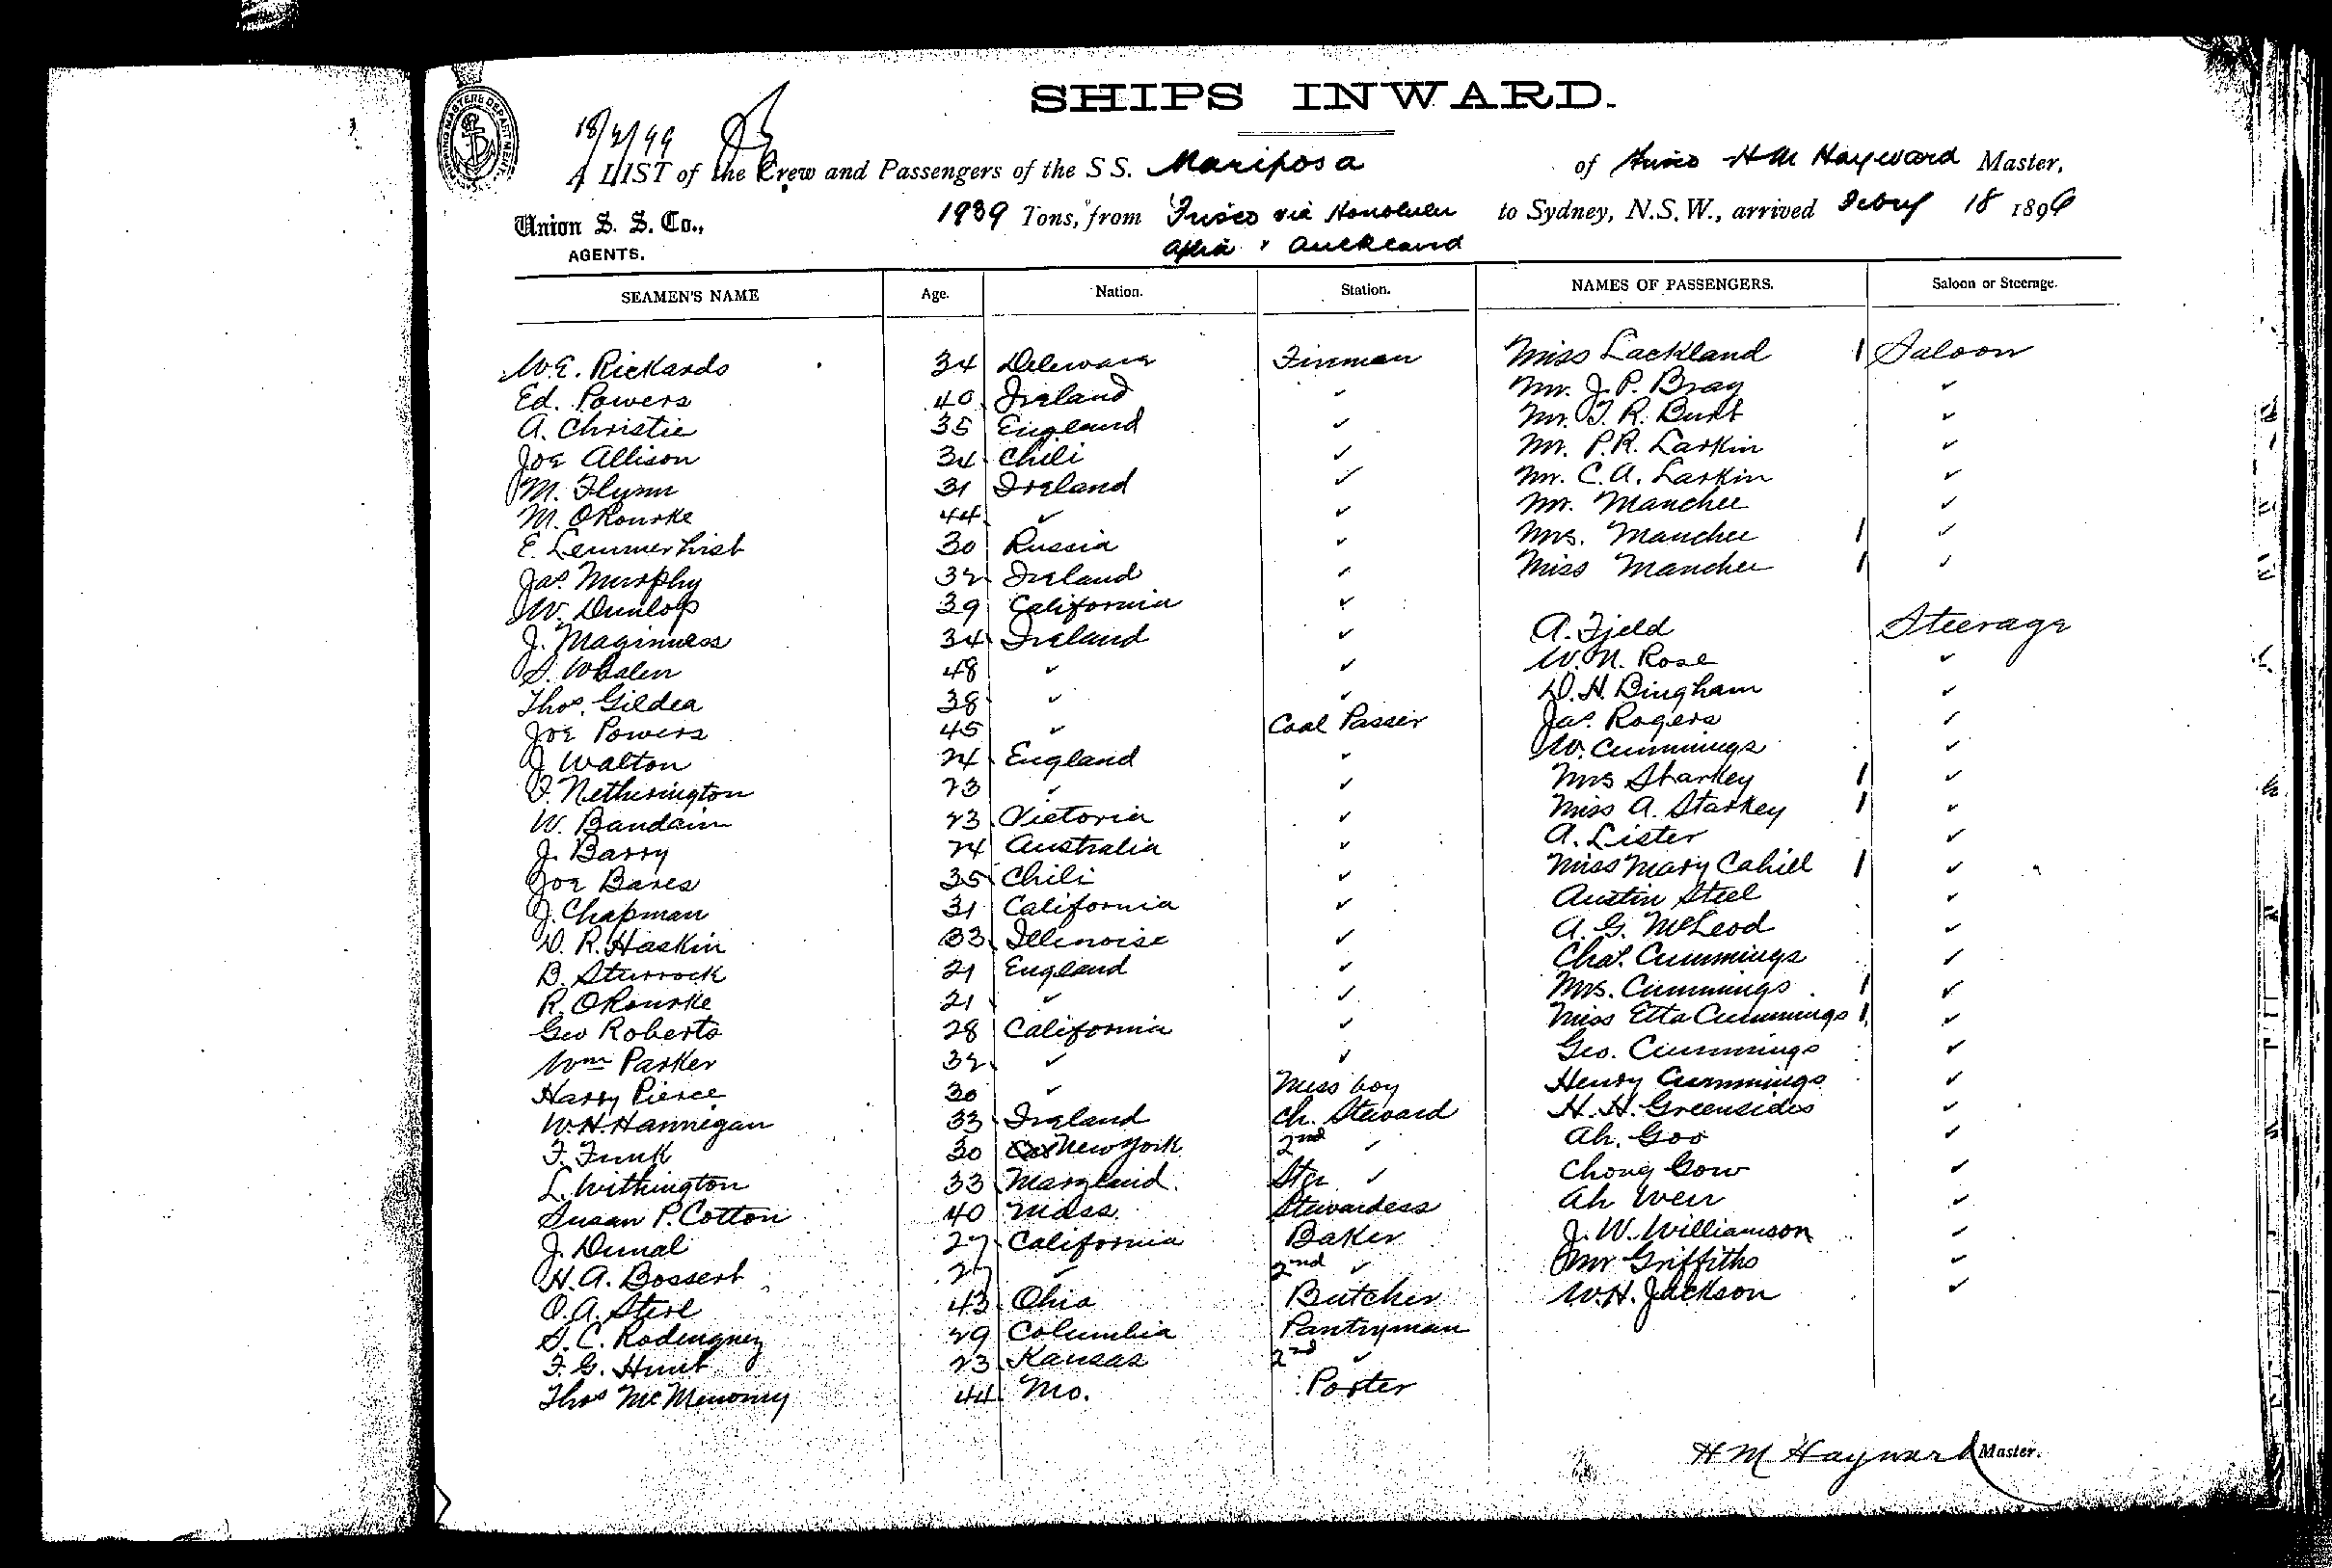 SHIPS INWARD.
A LIST of the Crew and Passengers of the S S. Mariposa of Frisco H M Hayward Master,
Union S. S. Co., 1939 Tons, from Frisco via Honolulu to Sydney, N.S.W., arrived Feby 18 1896
AGENTS. Apia & Auckland
SEAMEN'S NAME Age. Nation. Station. NAMES OF PASSENGERS. Saloon or Steerage.
W.E. Rickards 34 Deleware Fireman Miss Lackland 1 Saloon
Ed. Powers 40 Ireland ✓ Mr. J. P. Bray ✓
A. Christie 35 England ✓ Mr. T. R. Burt ✓
Joe Allison 34 Chili ✓ Mr. P.R. Larkin ✓
M. Flynn 31 Ireland ✓ Mr. C. A. Larkin ✓
M. ORourke 44 ✓ ✓ Mr. Manchee ✓
E. Lemmerhist 30 Russia ✓ Mrs. Manchee 1 ✓
Jas. Murphy 32 Ireland ✓ Miss Manchee 1 ✓
W. Dunlop 39 California ✓
J. Maginness 34 Ireland ✓ A. Fjeld Steerage
S. Whalen 48 ✓ ✓ W. N. Rose ✓
Thos. Gildea 38 ✓ ✓ D. H. Bingham ✓
Joe Powers 45 ✓ Coal Passer Jas. Rogers ✓
J Walton 24 England ✓ W. Cummings ✓
Netherington 23 ✓ ✓ Mrs Starkey 1 ✓
W. Baudain 23 Victoria ✓ Miss A. Starkey 1 ✓
J. Barry 24 Australia ✓ A. Lister ✓
Joe Bares 35 Chili ✓ Miss Mary Cahill 1 ✓
J. Chapman 31 California ✓ Austin Steel ✓
D. R. Haskin 33 Illinoise ✓ A. G. McLeod ✓
B. Sturrock 21 England ✓ Chas. Cummings ✓
R. ORourke 21 ✓ ✓ Mrs. Cummings 1 ✓
Geo Roberts 28 California ✓ Miss Etta Cummings 1 ✓
Wm Parker 32 ✓ ✓ Geo. Cummings ✓
Harry Pierce 30 ✓ Mess boy Henry Cummings ✓
W.H. Hannigan 33 Ireland Ch. Steward H. H. Greensides ✓
F. Funk 30 New York 2nd ✓ Ah. Goo ✓
L. Withington 33 Maryland Stg ✓ Chong Gow ✓
Susan P. Cotton 40 Mass. Stewardess Ah Wen ✓
J. Dunal 27 California Baker J. W. Williamson ✓
H. A. Bossert 27 ✓ 2nd ✓ Mr Griffiths ✓
O. A. Stirl 43 Ohio Butcher W. H. Jackson ✓
S. C. Rodengnez 29 Columbia Pantryman
F. G. Hunt 23 Kansas 2nd ✓
Thos McMenomy 44 Mo. Porter
H M Hayward Master.